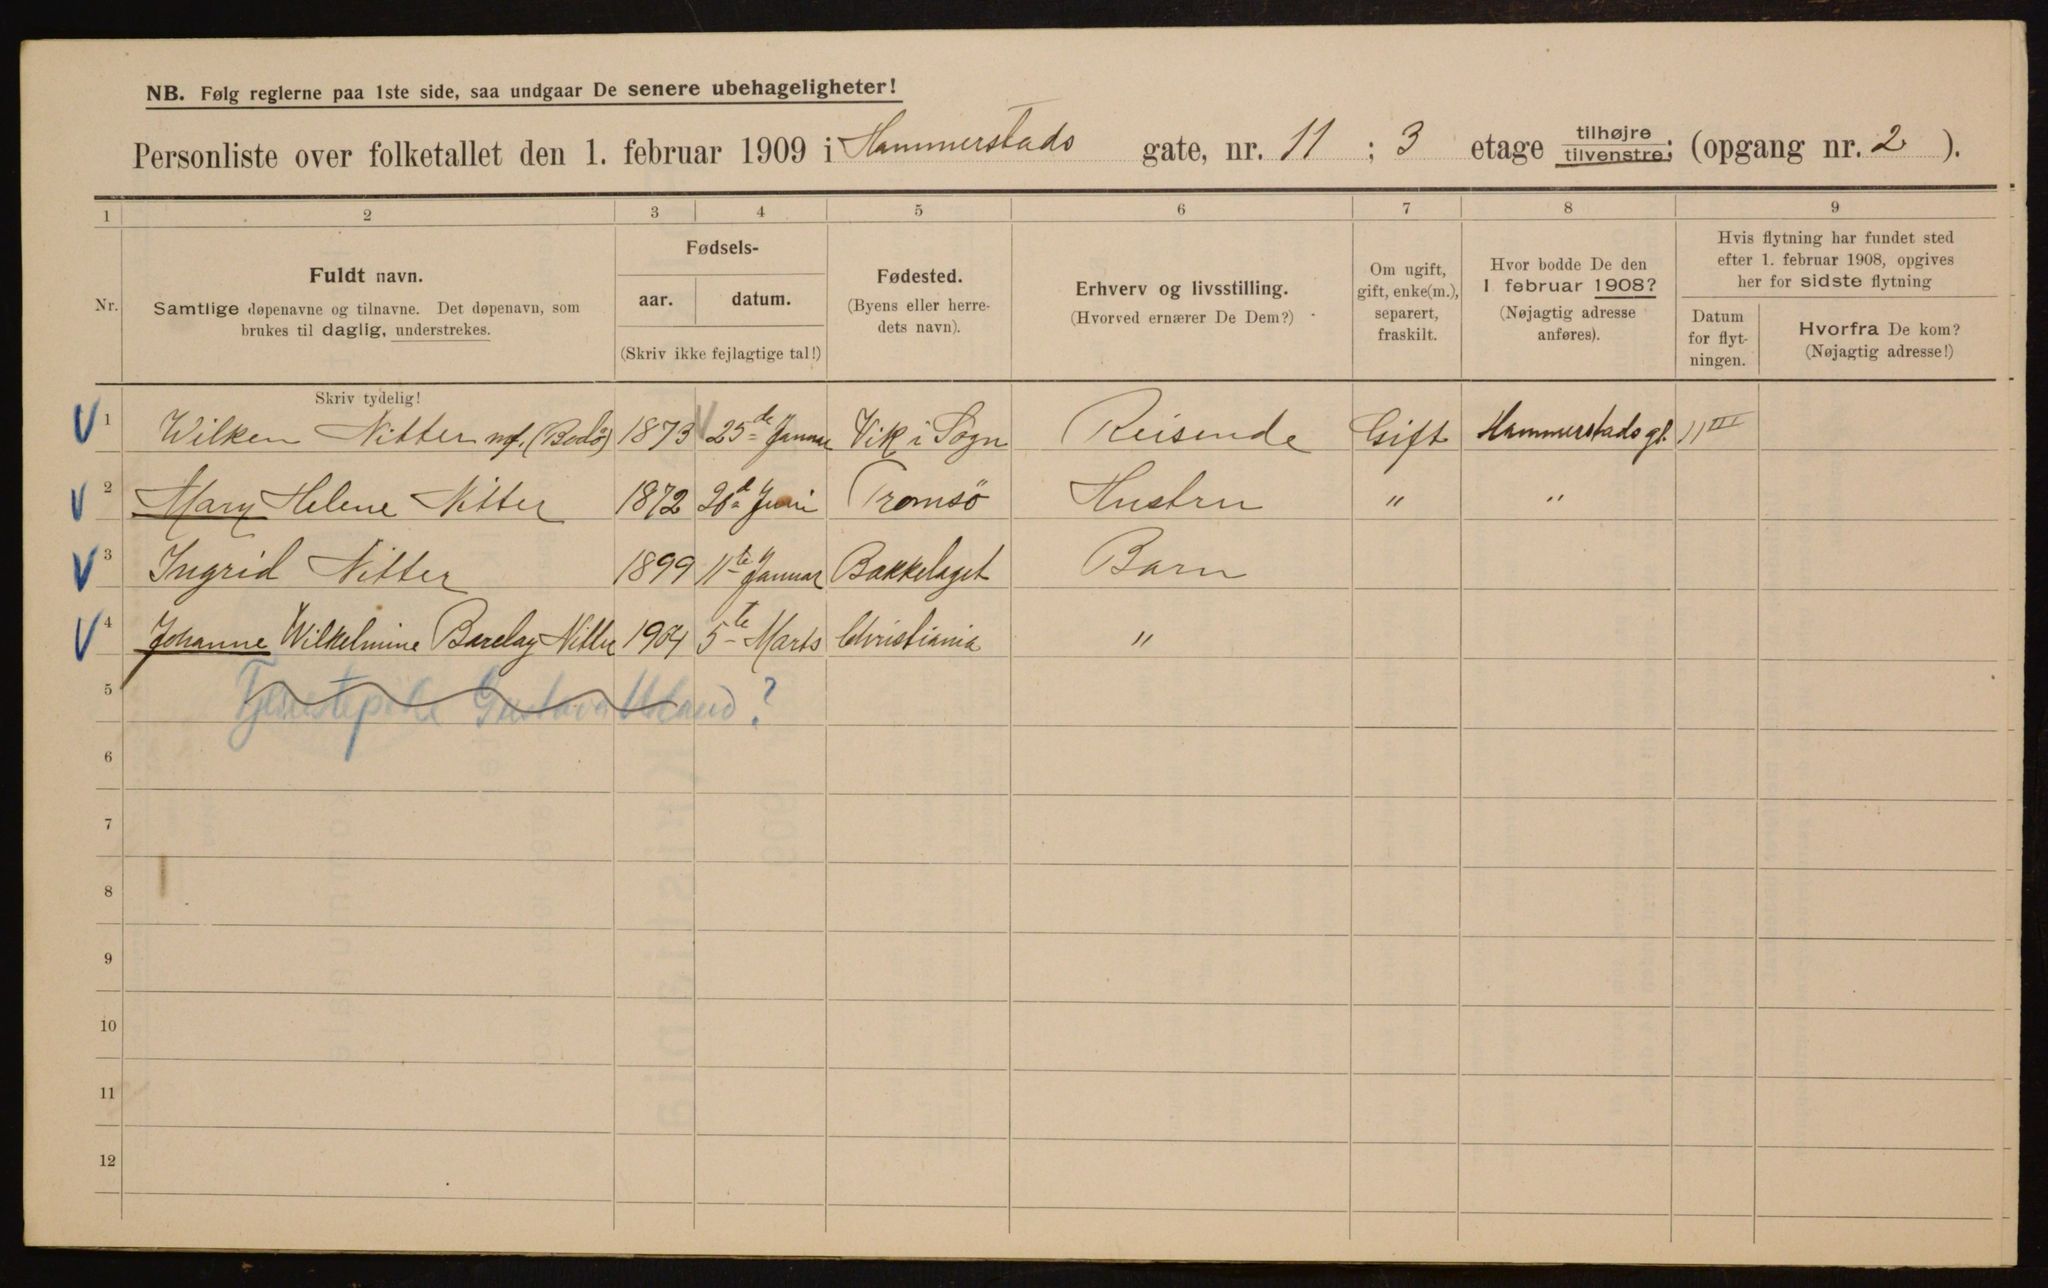 NB. Følg reglerne paa 1ste side, saa undgaar De senere ubehageligheter!
Personliste over folketallet den 1. februar 1909 i Hammerstads gate, nr. 11 ; 3 etage tilhøjre tilvenstre; (opgang nr. 2 ).
1 2 3 4 5 6 7 8 9
Nr.
Fuldt navn.
Samtlige døpenavne og tilnavne. Det døpenavn, som
brukes til daglig, understrekes.
Fødsels-
aar. datum.
(Skriv ikke fejlagtige tal!)
Fødested.
(Byens eller herre-
dets navn).
Erhverv og livsstilling.
(Hvorved ernærer De Dem?)
Om ugift,
gift, enke(m.),
separert,
fraskilt.
Hvor bodde De den
1 februar 1908?
(Nøjagtig adresse
anføres).
Hvis flytning har fundet sted
efter 1. februar 1908, opgives
her for sidste flytning
Datum
for flyt-
ningen.
Hvorfra De kom?
(Nøjagtig adresse!)
Skriv tydelig!
1 Wilken Nitter mf. (Bodø) 1873 25de Januar Vik i Sogn Reisende Gift Hammerstads gt. 11 III
2 Mary Helene Nitter 1872 Juni Tromsø Hustru " "
3 Ingrid Nitter 1899 11te Januar Bækkelaget Barn
4 Johanne Wilhelmine Barclay Nitter 1904 5te Marts Christiania "
5 Tjenestepike Gustava ?
6
7
8
9
10
11
12